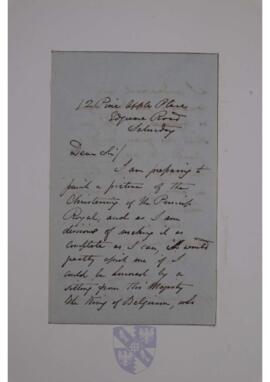 12 Pine Apple Place
Edgware Road
Saturday
Dear Sir/
I am preparing to
paint a picture of the
Christening of the Princess
Royal, and as I am
desirous of making it as
complete as I can, it would
greatly me if I
could be honored by a
sitting from His Majesty
the King of Belgium, who